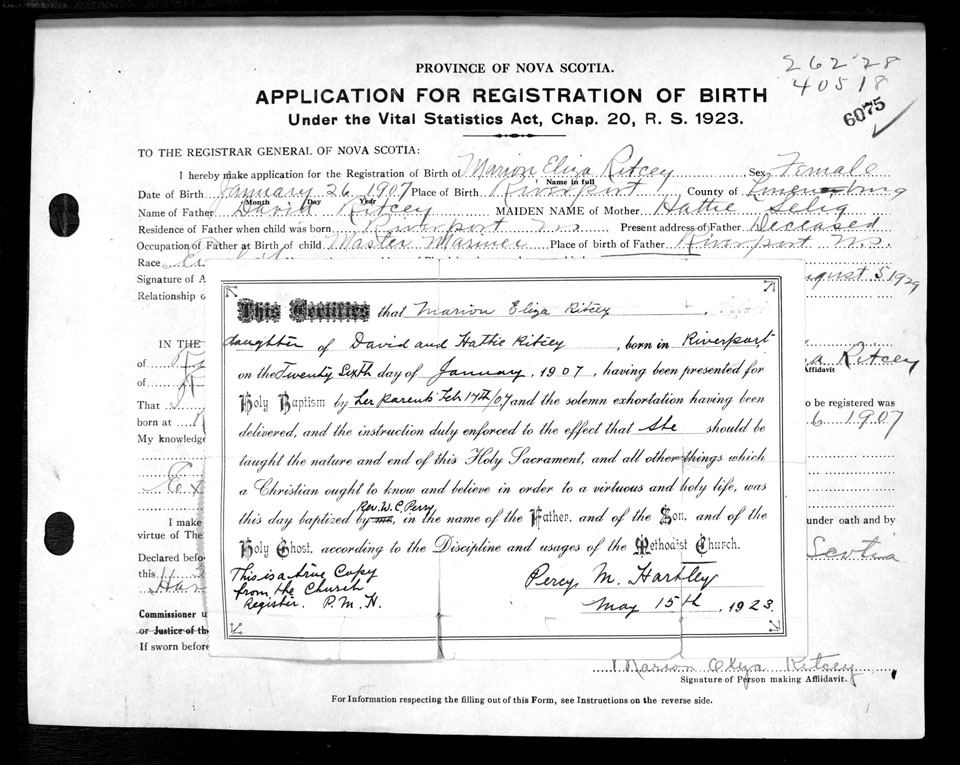 262728
40518
6075
PROVINCE OF NOVA SCOTIA.
APPLICATION FOR REGISTRATION OF BIRTH
Under the Vital Statistics Act, Chap. 20, R. S. 1923.
TO THE REGISTRAR GENERAL OF NOVA SCOTIA:
I hereby make application for the Registration of Birth of Marion Eliza Ritcey Sex Female
Name in full
Date of Birth January 26 1907 Place of Birth Riverport County of Lunenburg
Month Day Year
Name of Father David Ritcey MAIDEN NAME of Mother Hattie Selig
Residence of Father when child was born Riverport N.S. Present address of Father Deceased
Occupation of Father at Birth of child Master Mariner Place of birth of Father Riverport N.S.
Race
Signature of A August 5 1929
Relationship o
This Certifies that Marion Eliza Ritcey
daughter of David and Hattie Ritcey, born in Riverport
on the Twenty Sixth day of January, 1907, having been presented for
Holy Baptism by her parents Feb 17th/07 and the solemn exhortation having been
delivered, and the instruction duly enforced to the effect that she should be
taught the nature and end of this Holy Sacrament, and all other things which
a Christian ought to know and believe in order to a virtuous and holy life, was
Rev. W. C. Perry
this day baptized by me, in the name of the Father, and of the Son, and of the
Holy Ghost, according to the Discipline and usages of the Methodist Church.
This is a true Copy
from the Church
Register. P. M. H.
Percy M. Hartley
May 15th, 1923.
IN THE
of Ritcey
Affidavit
of
That to be registered was
born at 6 1907
My knowledge
I make under oath and by
virtue of The
Declared before Scotia
this
Commissioner
or Justice of th
If sworn before
Marion Eliza Ritcey
Signature of Person making Affidavit.
For Information respecting the filling out of this Form, see Instructions on the reverse side.